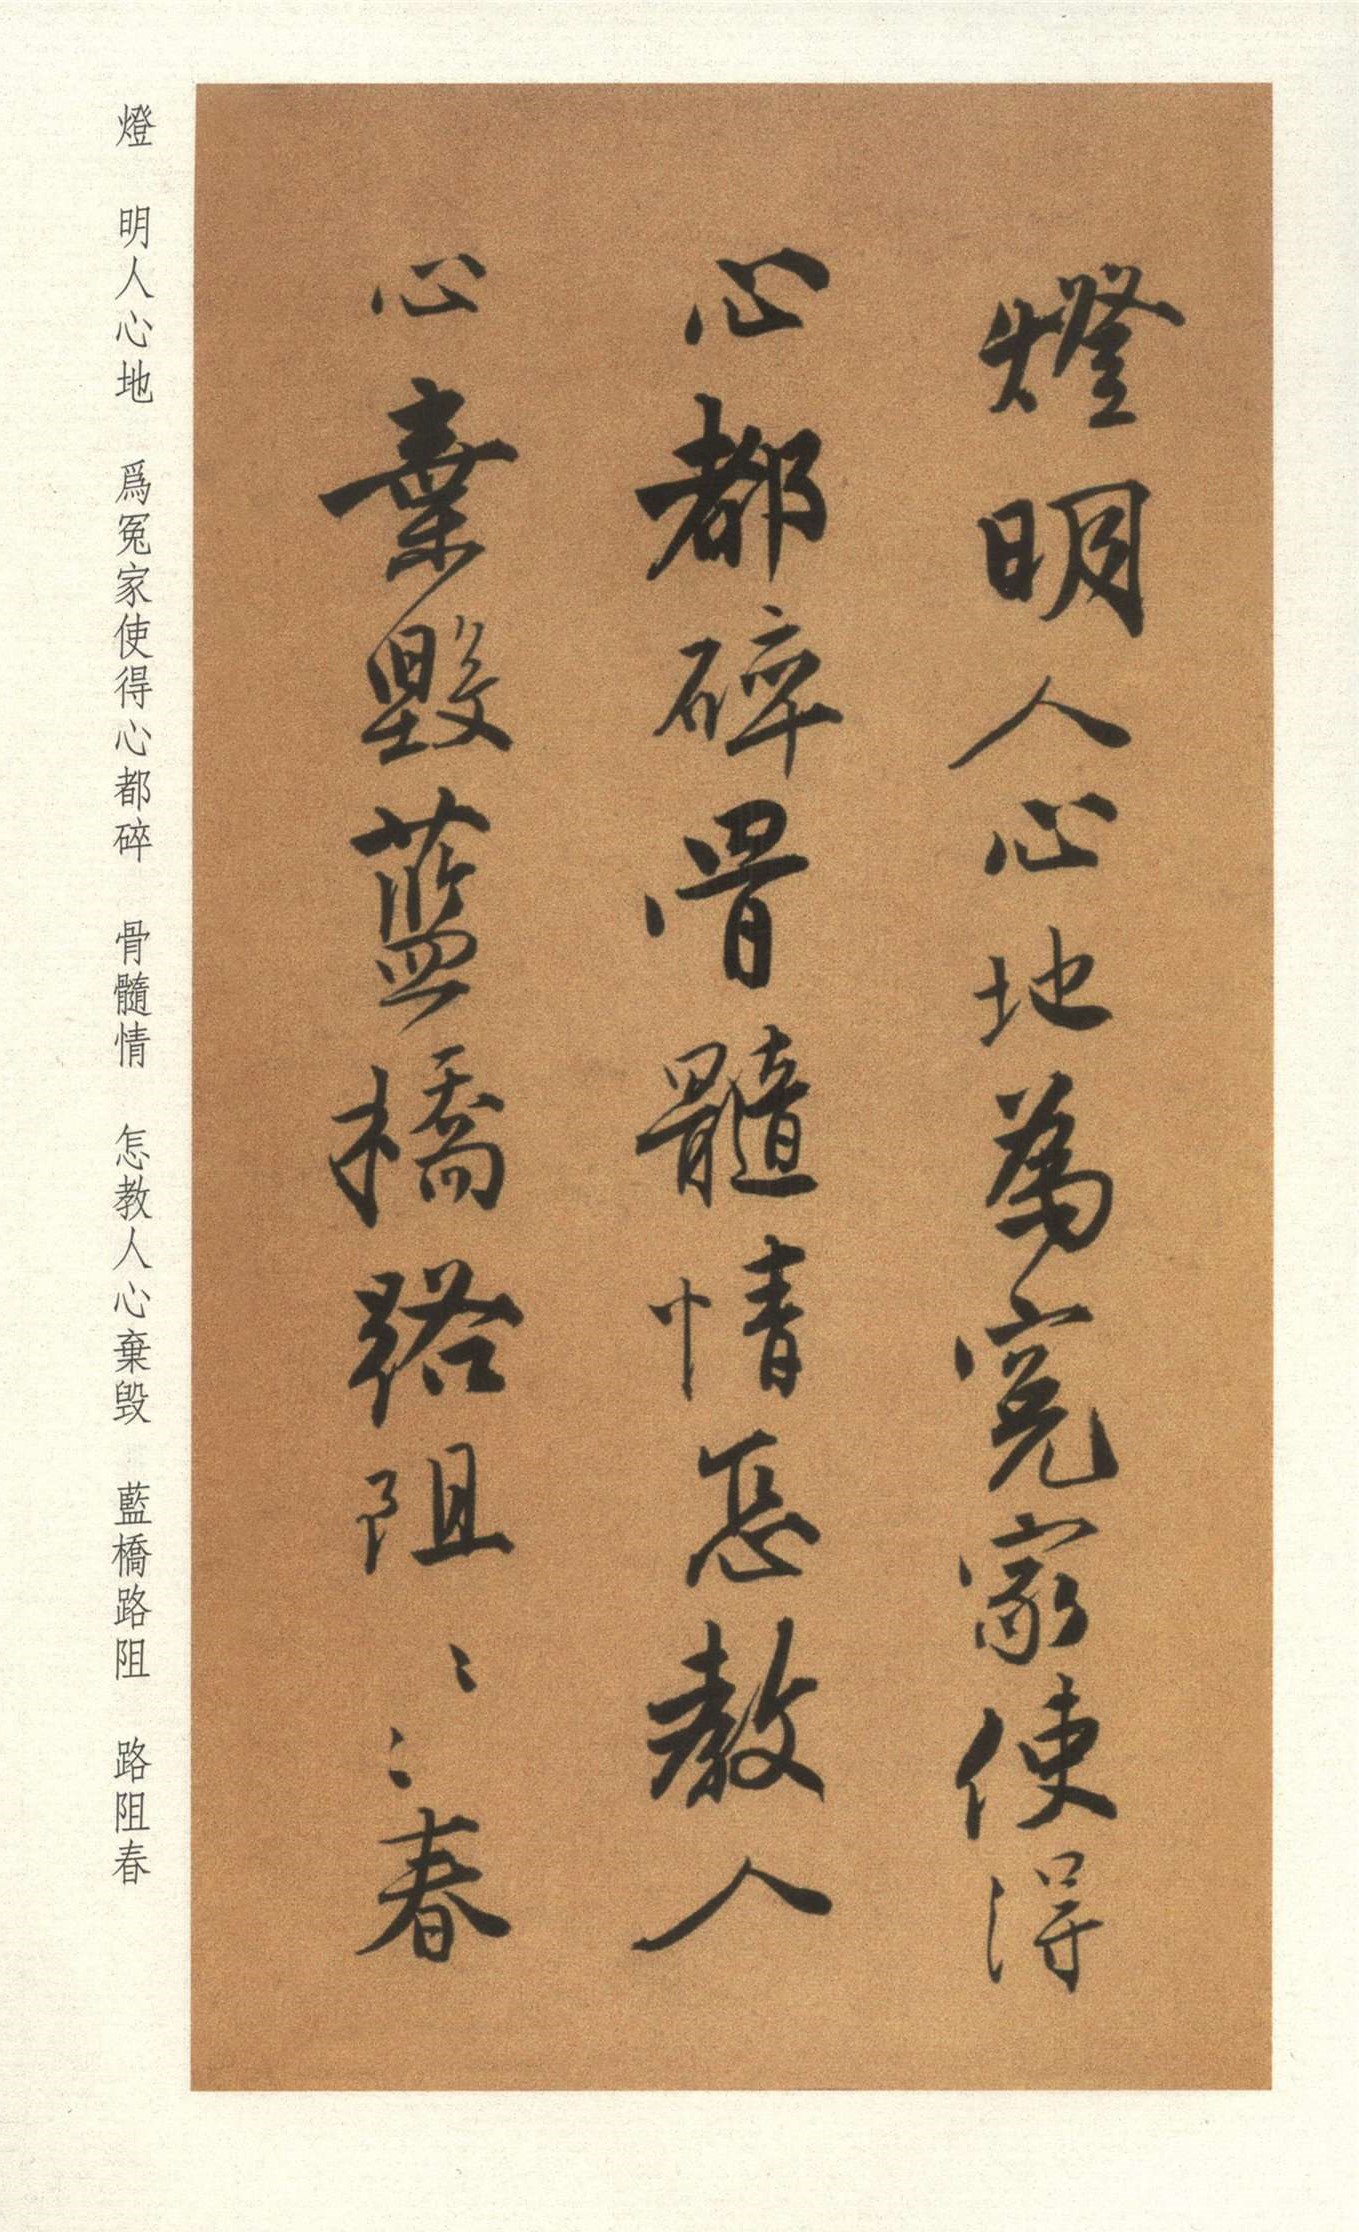 燈明人心地為冤家使得
心都碎骨髓情怎教人
心棄毀藍橋路阻〻〻春
燈　明人心地　爲冤家使得心都碎　骨髓情　怎教人心棄毁　藍橋路阻　路阻春